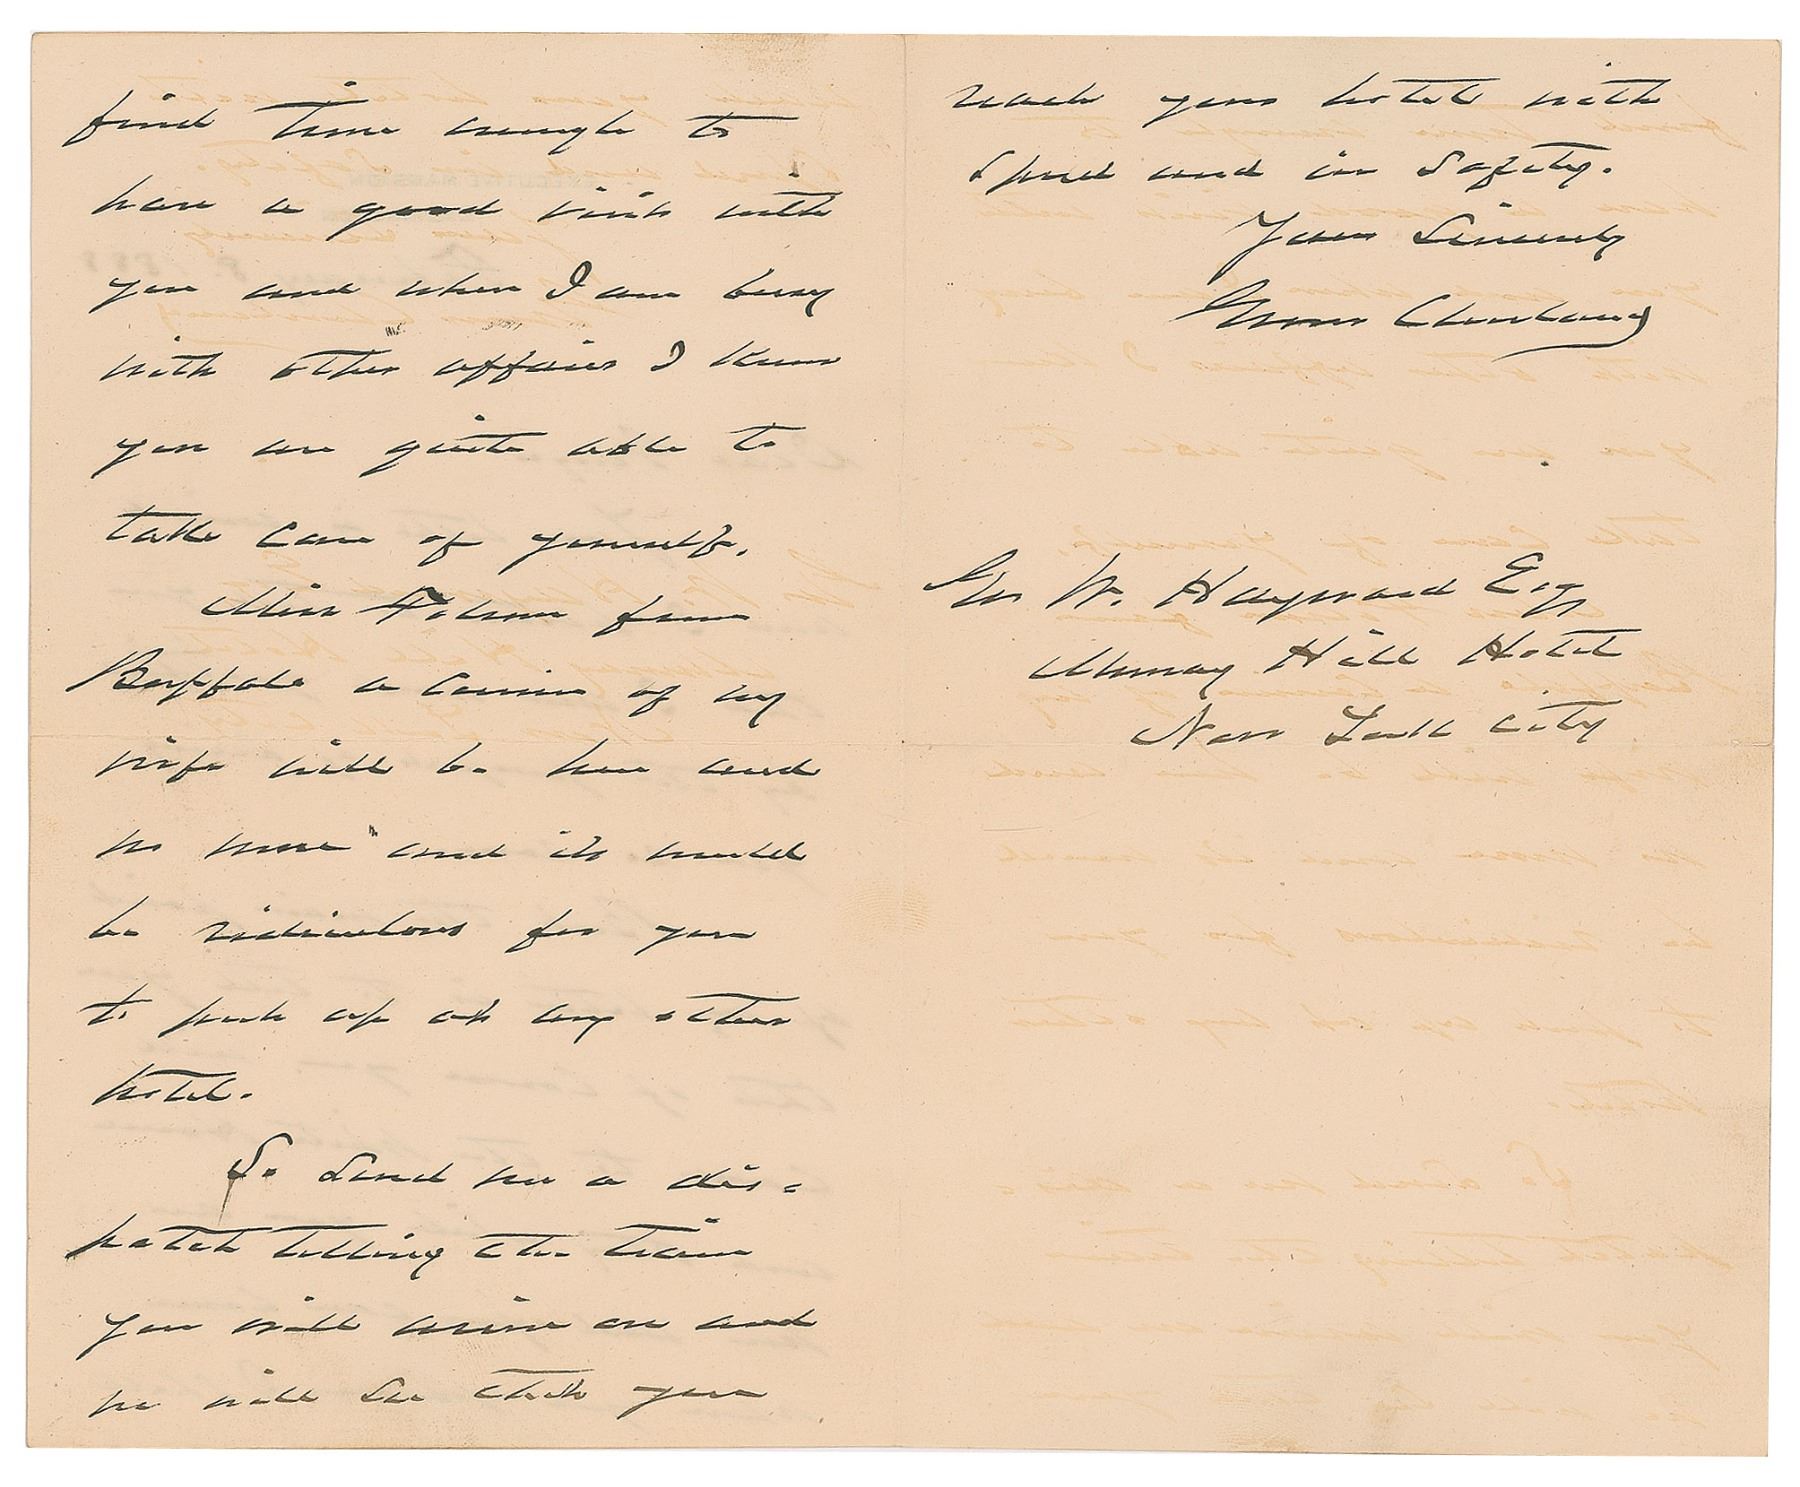 find time enough to
have a good visit with
you and when I am busy
with other affairs I know
you are quite able to
take care of yourself.
Miss Folsom from
Buffalo a cousin of my
wife will be here and
no more and it would
be ridiculous for you
to put up at any other
hotel.
So send me a dis=
patch telling the train
you will arrive on and
we will see that you
reach your hotel with
speed and in safety.
Yours Sincerely
Grover Cleveland
Geo W. Hayward Esq
Murray Hill Hotel
New York City